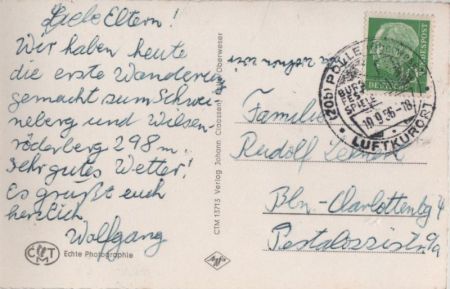 Liebe Eltern!
Wir haben heute
die erste Wanderung
gemacht zum Schwei-
neberg und
röderberg 298 m.
Sehr gutes Wetter!
Es grüßt euch
herzlich
Wolfgang
CMT
Echte Photographie
CTM 13713 Verlag Johann Claassen
Agfa
(20b)
BURG
FEST
SPIELE
18.9.56-18
LUFTKURORT
DEUTSCHE BUNDESPOST
Familie
Rudolf
Bln-Charlottenbg 4
Pestalozzistr. 9a